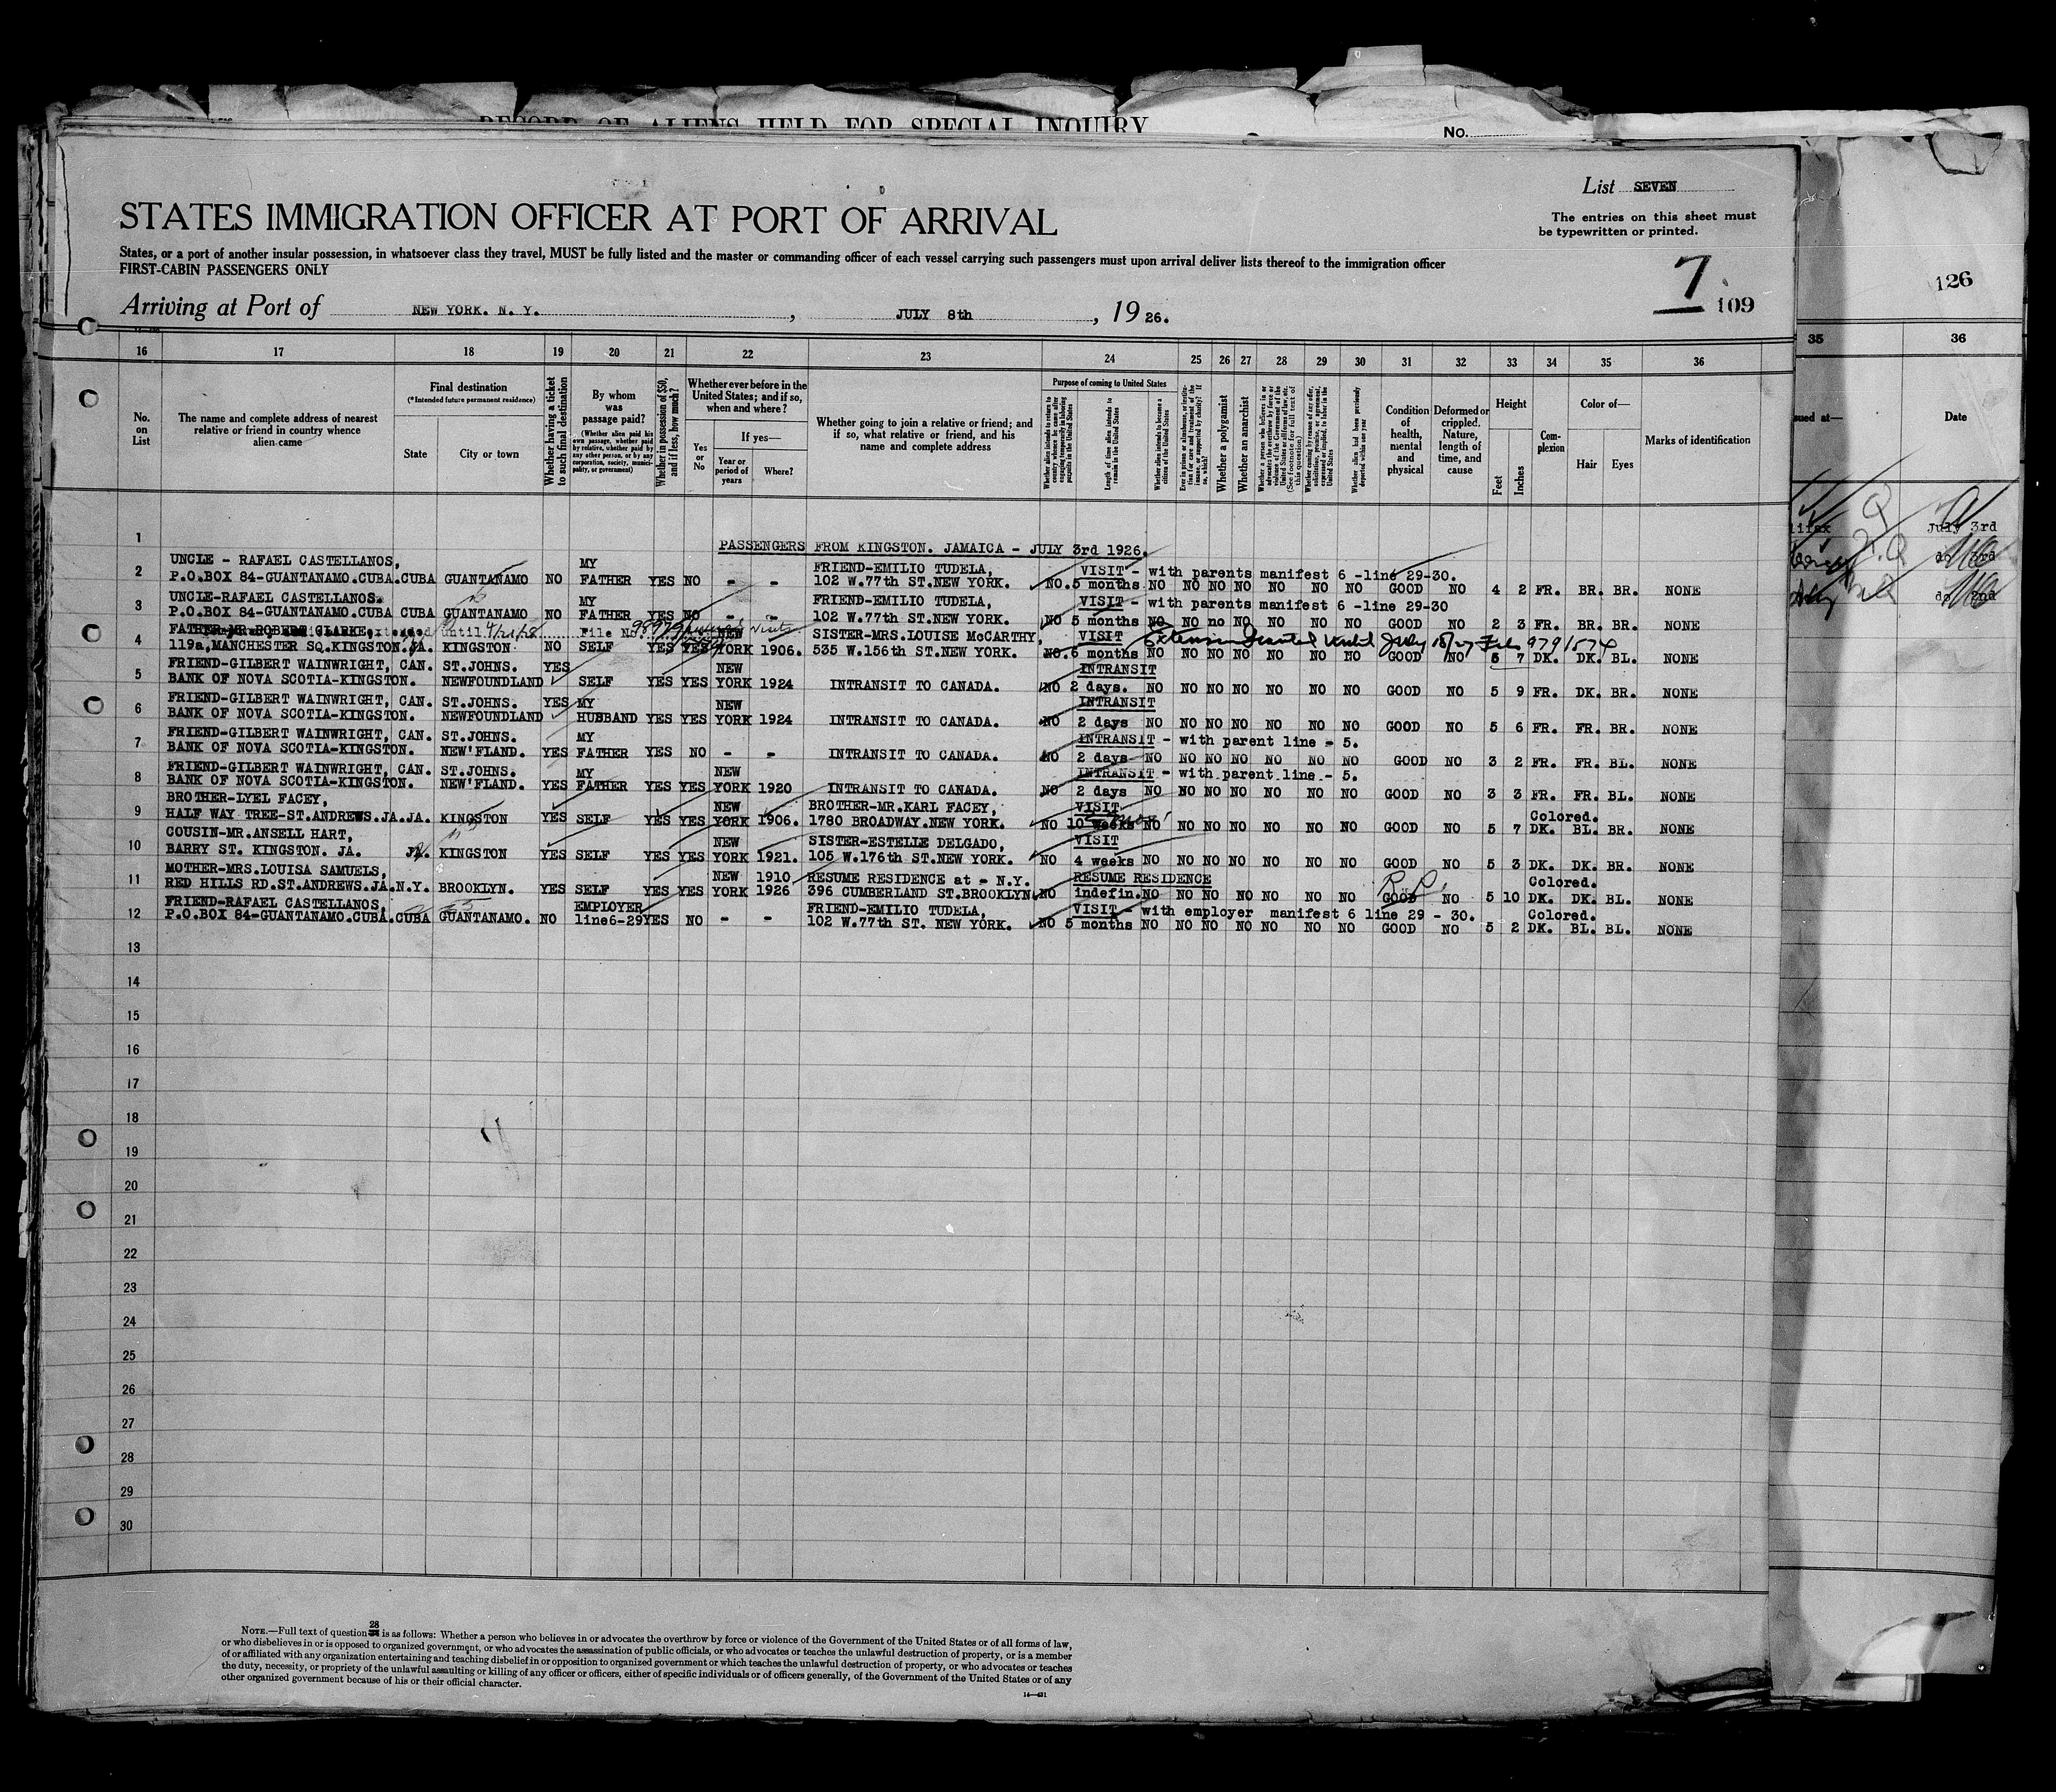 RECORD OF ALIENS HELD FOR SPECIAL INQUIRY
No.
List SEVEN
STATES IMMIGRATION OFFICER AT PORT OF ARRIVAL
The entries on this sheet must
be typewritten or printed.
States, or a port of another insular possession, in whatsoever class they travel, MUST be fully listed and the master or commanding officer of each vessel carrying such passengers must upon arrival deliver lists thereof to the immigration officer
FIRST-CABIN PASSENGERS ONLY
7 109
126
Arriving at Port of NEW YORK. N. Y., JULY 8th, 19 26.
16 17 18 19 20 21 22 23 24 25 26 27 28 29 30 31 32 33 34 35 36
35 36
No. on List
The name and complete address of nearest relative or friend in country whence alien came
Final destination
(*Intended future permanent residence)
State
City or town
Whether having a ticket to such final destination
By whom was passage paid?
(Whether alien paid his own passage, whether paid by relative, whether paid by any other person, or by any corporation, society, municipality, or government)
Whether in possession of $50, and if less, how much?
Whether ever before in the United States; and if so, when and where?
Yes or No
If yes—
Year or period of years
Where?
Whether going to join a relative or friend; and if so, what relative or friend, and his name and complete address
Purpose of coming to United States
Whether alien intends to return to country whence he came after engaging temporarily in laboring pursuits in the United States
Length of time alien intends to remain in the United States
Whether alien intends to become a citizen of the United States
Whether a polygamist
Whether an anarchist
Condition of health, mental and physical
Deformed or crippled. Nature, length of time, and cause
Height
Feet
Inches
Complexion
Color of—
Hair
Eyes
Marks of identification
sued at—
Date
1
PASSENGERS FROM KINGSTON. JAMAICA - JULY 3rd 1926.
July 3rd
do 3rd
do 2nd
UNCLE - RAFAEL CASTELLANOS, MY FRIEND-EMILIO TUDELA, VISIT - with parents manifest 6 -line 29-30.
2 P.O.BOX 84-GUANTANAMO.CUBA. CUBA GUANTANAMO NO FATHER YES NO - - 102 W.77th ST.NEW YORK. NO. 5 months NO NO NO NO NO NO NO GOOD NO 4 2 FR. BR. BR. NONE
UNCLE-RAFAEL CASTELLANOS. MY FRIEND-EMILIO TUDELA, VISIT - with parents manifest 6 -line 29-30
3 P.O.BOX 84-GUANTANAMO.CUBA CUBA GUANTANAMO NO FATHER YES NO - - 102 W.77th ST.NEW YORK. NO 5 months NO NO no NO NO NO NO GOOD NO 2 3 FR. BR. BR. NONE
FATHER-MR.ROBERT CLARKE, until File No. NEW SISTER-MRS.LOUISE McCARTHY, VISIT Extension Granted Until July 18/27 File 979/574
4 119a,MANCHESTER SQ.KINGSTON. JA. KINGSTON NO SELF YES YES YORK 1906. 535 W.156th ST.NEW YORK. NO. 6 months NO NO NO NO NO NO NO GOOD NO 5 7 DK. DK. BL. NONE
FRIEND-GILBERT WAINWRIGHT, CAN. ST.JOHNS. YES NEW INTRANSIT
5 BANK OF NOVA SCOTIA-KINGSTON. NEWFOUNDLAND SELF YES YES YORK 1924 INTRANSIT TO CANADA. NO 2 days. NO NO NO NO NO NO NO GOOD NO 5 9 FR. DK. BR. NONE
FRIEND-GILBERT WAINWRIGHT, CAN. ST.JOHNS. YES MY NEW INTRANSIT
6 BANK OF NOVA SCOTIA-KINGSTON. NEWFOUNDLAND HUSBAND YES YES YORK 1924 INTRANSIT TO CANADA. NO 2 days NO NO NO NO NO NO NO GOOD NO 5 6 FR. FR. BR. NONE
FRIEND-GILBERT WAINWRIGHT, CAN. ST.JOHNS. MY INTRANSIT - with parent line - 5.
7 BANK OF NOVA SCOTIA-KINGSTON. NEW'FLAND. YES FATHER YES NO - - INTRANSIT TO CANADA. NO 2 days NO NO NO NO NO NO NO GOOD NO 3 2 FR. FR. BL. NONE
FRIEND-GILBERT WAINWRIGHT, CAN. ST.JOHNS. MY NEW INTRANSIT - with parent line - 5.
8 BANK OF NOVA SCOTIA-KINGSTON. NEW'FLAND. YES FATHER YES YES YORK 1920 INTRANSIT TO CANADA. NO 2 days NO NO NO NO NO NO NO GOOD NO 3 3 FR. FR. BL. NONE
BROTHER-LYEL FACEY, NEW BROTHER-MR.KARL FACEY, VISIT Colored.
9 HALF WAY TREE-ST.ANDREWS.JA. JA. KINGSTON YES SELF YES YES YORK 1906. 1780 BROADWAY.NEW YORK. NO 10 weeks NO NO NO NO NO NO NO GOOD NO 5 7 DK. BL. BR. NONE
COUSIN-MR.ANSELL HART, NEW SISTER-ESTELLE DELGADO, VISIT
10 BARRY ST. KINGSTON. JA. JA. KINGSTON YES SELF YES YES YORK 1921. 105 W.176th ST.NEW YORK. NO 4 weeks NO NO NO NO NO NO NO GOOD NO 5 3 DK. DK. BR. NONE
MOTHER-MRS.LOUISA SAMUELS, NEW 1910 RESUME RESIDENCE at - N.Y. RESUME RESIDENCE Colored.
11 RED HILLS RD.ST.ANDREWS.JA. N.Y. BROOKLYN. YES SELF YES YES YORK 1926 396 CUMBERLAND ST.BROOKLYN. NO indefin. NO NO NO NO NO NO NO GOOD NO 5 10 DK. DK. BL. NONE
FRIEND-RAFAEL CASTELLANOS, EMPLOYER FRIEND-EMILIO TUDELA, VISIT - with employer manifest 6 line 29 - 30. Colored.
12 P.O.BOX 84-GUANTANAMO.CUBA. CUBA GUANTANAMO. NO line6-29 YES NO - - 102 W.77th ST. NEW YORK. NO 5 months NO NO NO NO NO NO NO GOOD NO 5 2 DK. BL. BL. NONE
13
14
15
16
17
18
19
20
21
22
23
24
25
26
27
28
29
30
28
NOTE.—Full text of question is as follows: Whether a person who believes in or advocates the overthrow by force or violence of the Government of the United States or of all forms of law,
or who disbelieves in or is opposed to organized government, or who advocates the assassination of public officials, or who advocates or teaches the unlawful destruction of property, or is a member
of or affiliated with any organization entertaining and teaching disbelief in or opposition to organized government or which teaches the unlawful destruction of property, or who advocates or teaches
the duty, necessity, or propriety of the unlawful assaulting or killing of any officer or officers, either of specific individuals or of officers generally, of the Government of the United States or of any
other organized government because of his or their official character.